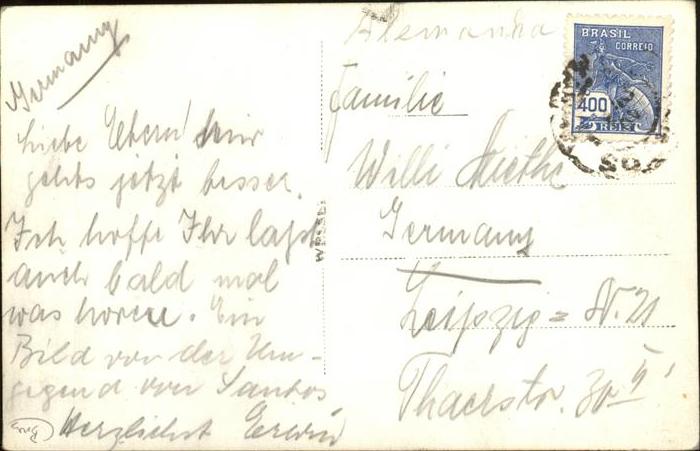 Germany
Liebe Eltern! mir
gehts jetzt besser.
Ich hoffe Ihr lasst
auch bald mal
was hören. Ein
Bild von der Um-
gegend von Santos
Herzlichst Erwin
WESSEL
Alemanha
Familie
Willi
Germany
Leipzig = N. 21
Thaerstr. 30 II
BRASIL
CORREIO
400
REIS